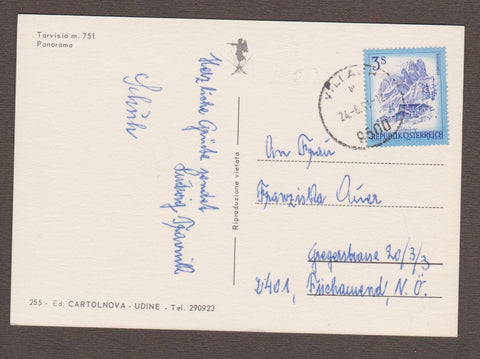 Tarvisio m. 751
Panorama
Herzliche Grüße sendet
Ludwig
Riproduzione vietata
255 - Ed. CARTOLNOVA - UDINE - Tel. 290923
3S
REPUBLIK ÖSTERREICH
VILLACH
9500
An Frau
Franziska Auer
Gregerstrasse 20/3/3
2401, Fischamend, N.Ö.